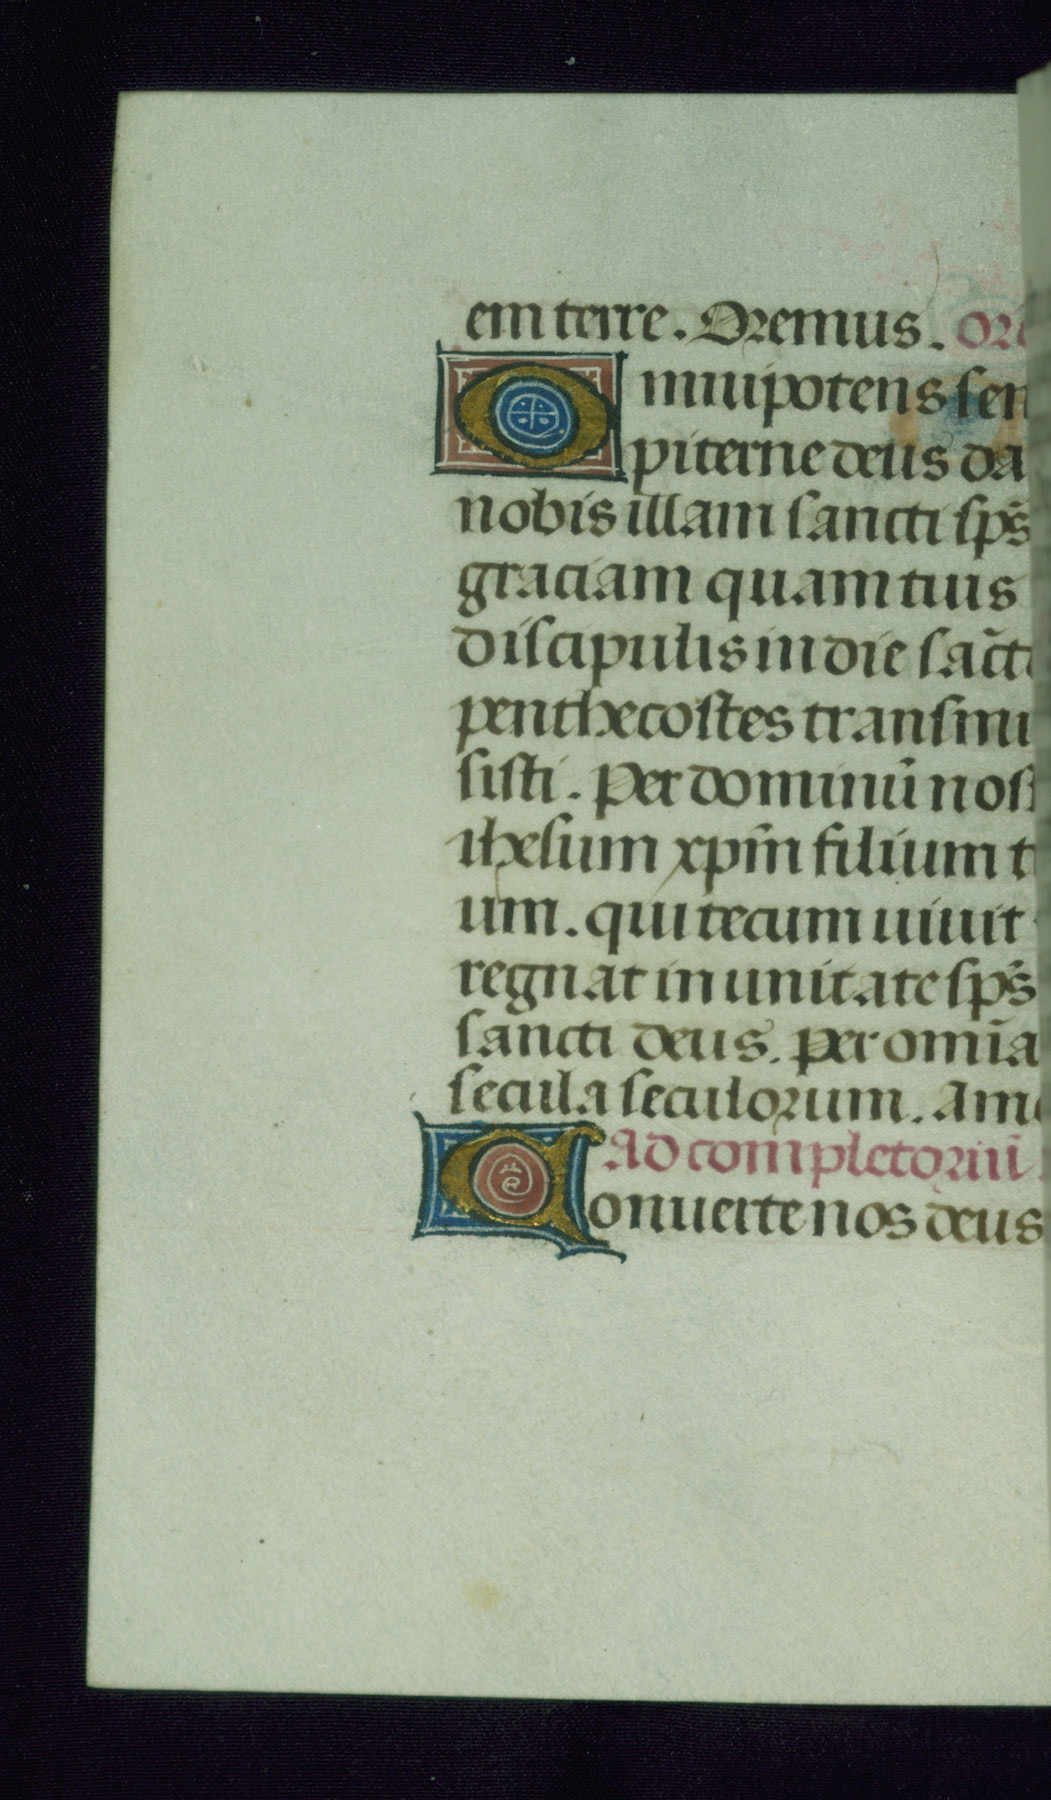 em terre. Oremus. Or
Omnipotens sem
piterne deus da
nobis illam sancti sp̄s
graciam quam tuis
discipulis in die sāct
penthecostes transmi
sisti. Per dominū nos
ihesum xp̄m filium t
um. qui tecum uiuit
regnat in unitate sp̄s
sancti deus. per om̄ia
secula seculorum. Ame
Ad completoriū.
Conuerte nos deus